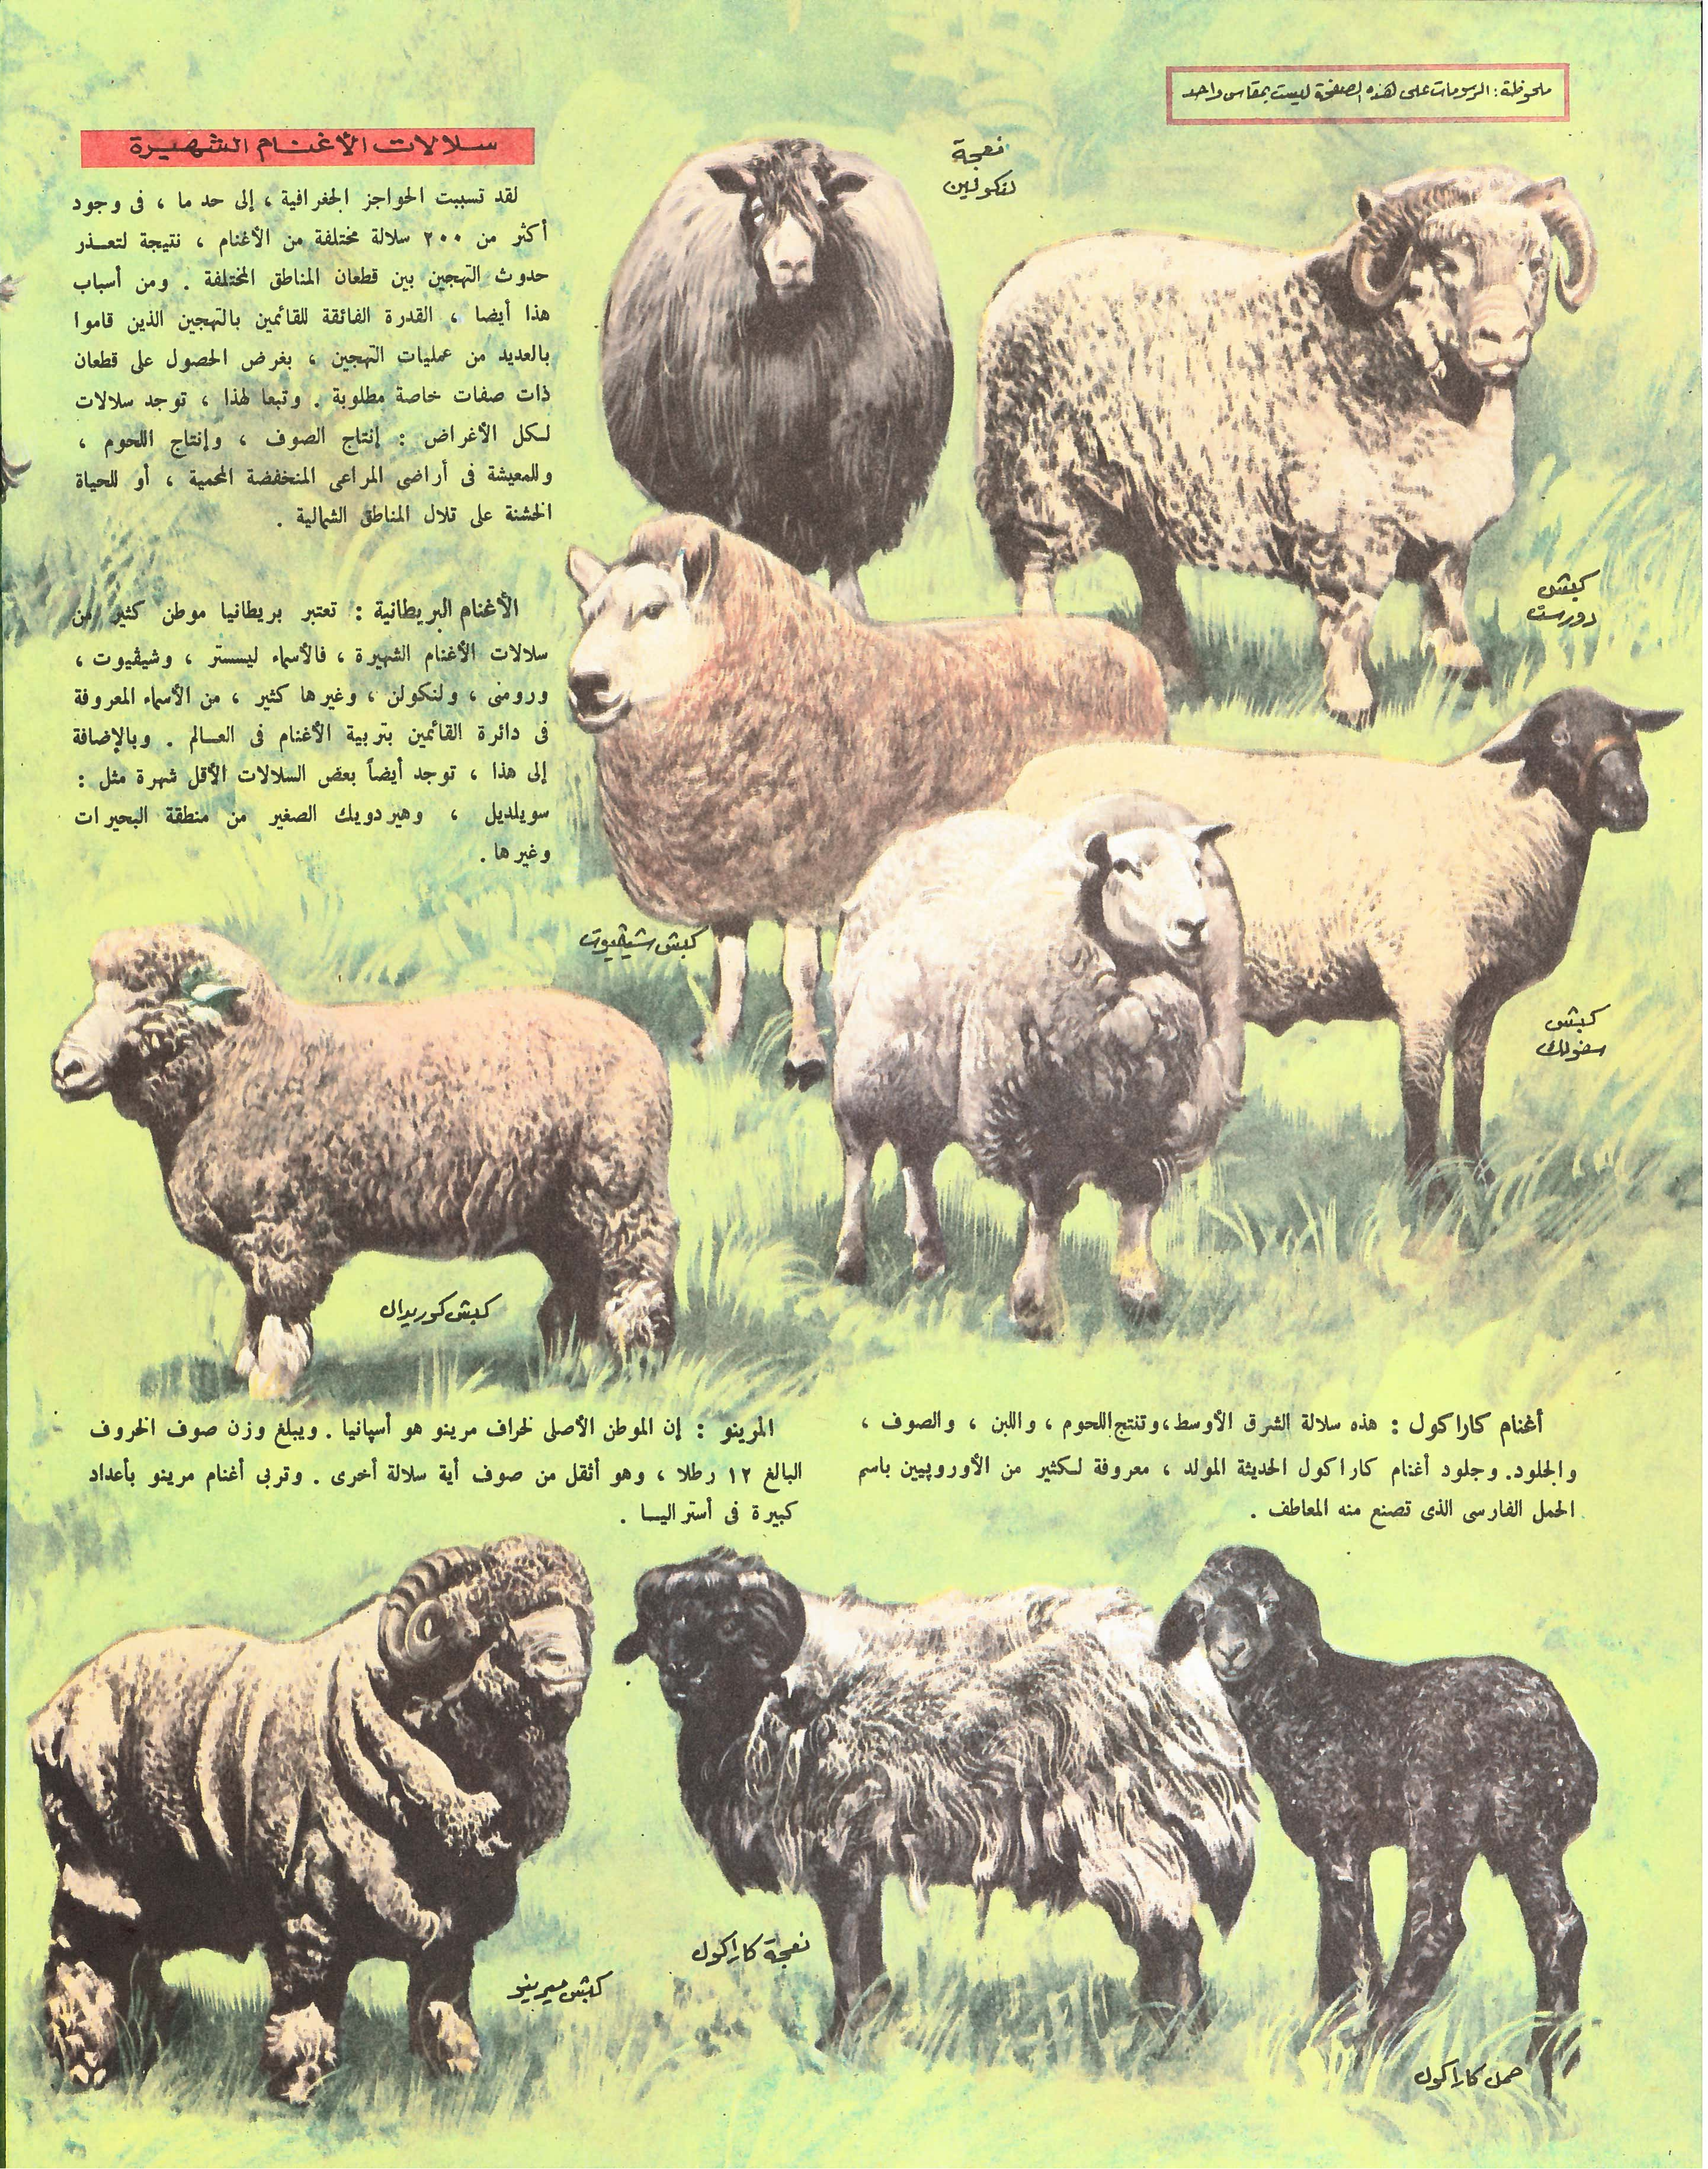 ملحوظة: الرسومات على هذه الصفحة ليست بمقاس واحد
سلالات الأغنام الشهيرة
لقد تسببت الحواجز الجغرافية ، إلى حد ما ، فى وجود
أكثر من ٢٠٠ سلالة مختلفة من الأغنام ، نتيجة لتعذر
حدوث التهجين بين قطعان المناطق المختلفة . ومن أسباب
هذا أيضا ، القدرة الفائقة للقائمين بالتهجين الذين قاموا
بالعديد من عمليات التهجين ، بغرض الحصول على قطعان
ذات صفات خاصة مطلوبة . وتبعا لهذا ، توجد سلالات
لكل الأغراض : إنتاج الصوف ، وإنتاج اللحوم ،
وللمعيشة فى أراضى المراعى المنخفضة المحمية ، أو للحياة
الخشنة على تلال المناطق الشمالية .
نعجة
لنكولين
كبش
دورست
الأغنام البريطانية : تعتبر بريطانيا موطن كثير من
سلالات الأغنام الشهيرة ، فالأسماء ليسستر ، وشيڤيوت ،
ورومنى ، ولنكولن ، وغيرها كثير ، من الأسماء المعروفة
فى دائرة القائمين بتربية الأغنام فى العالم . وبالإضافة
إلى هذا ، توجد أيضاً بعض السلالات الأقل شهرة مثل :
سويلديل ، وهيردويك الصغير من منطقة البحيرات
وغيرها .
كبش شيڤيوت
كبش
سفولك
كبش كوريدال
أغنام كاراكول : هذه سلالة الشرق الأوسط ، وتنتج اللحوم ، واللبن ، والصوف ،
والجلود. وجلود أغنام كاراكول الحديثة المولد ، معروفة لكثير من الأوروپيين باسم
الحمل الفارسى الذى تصنع منه المعاطف .
المرينو : إن الموطن الأصلى لخراف مرينو هو أسپانيا . ويبلغ وزن صوف الخروف
البالغ ١٢ رطلا ، وهو أثقل من صوف أية سلالة أخرى . وتربى أغنام مرينو بأعداد
كبيرة فى أستراليا .
كبش ميرينو
نعجة كاراكول
حمل كاراكول